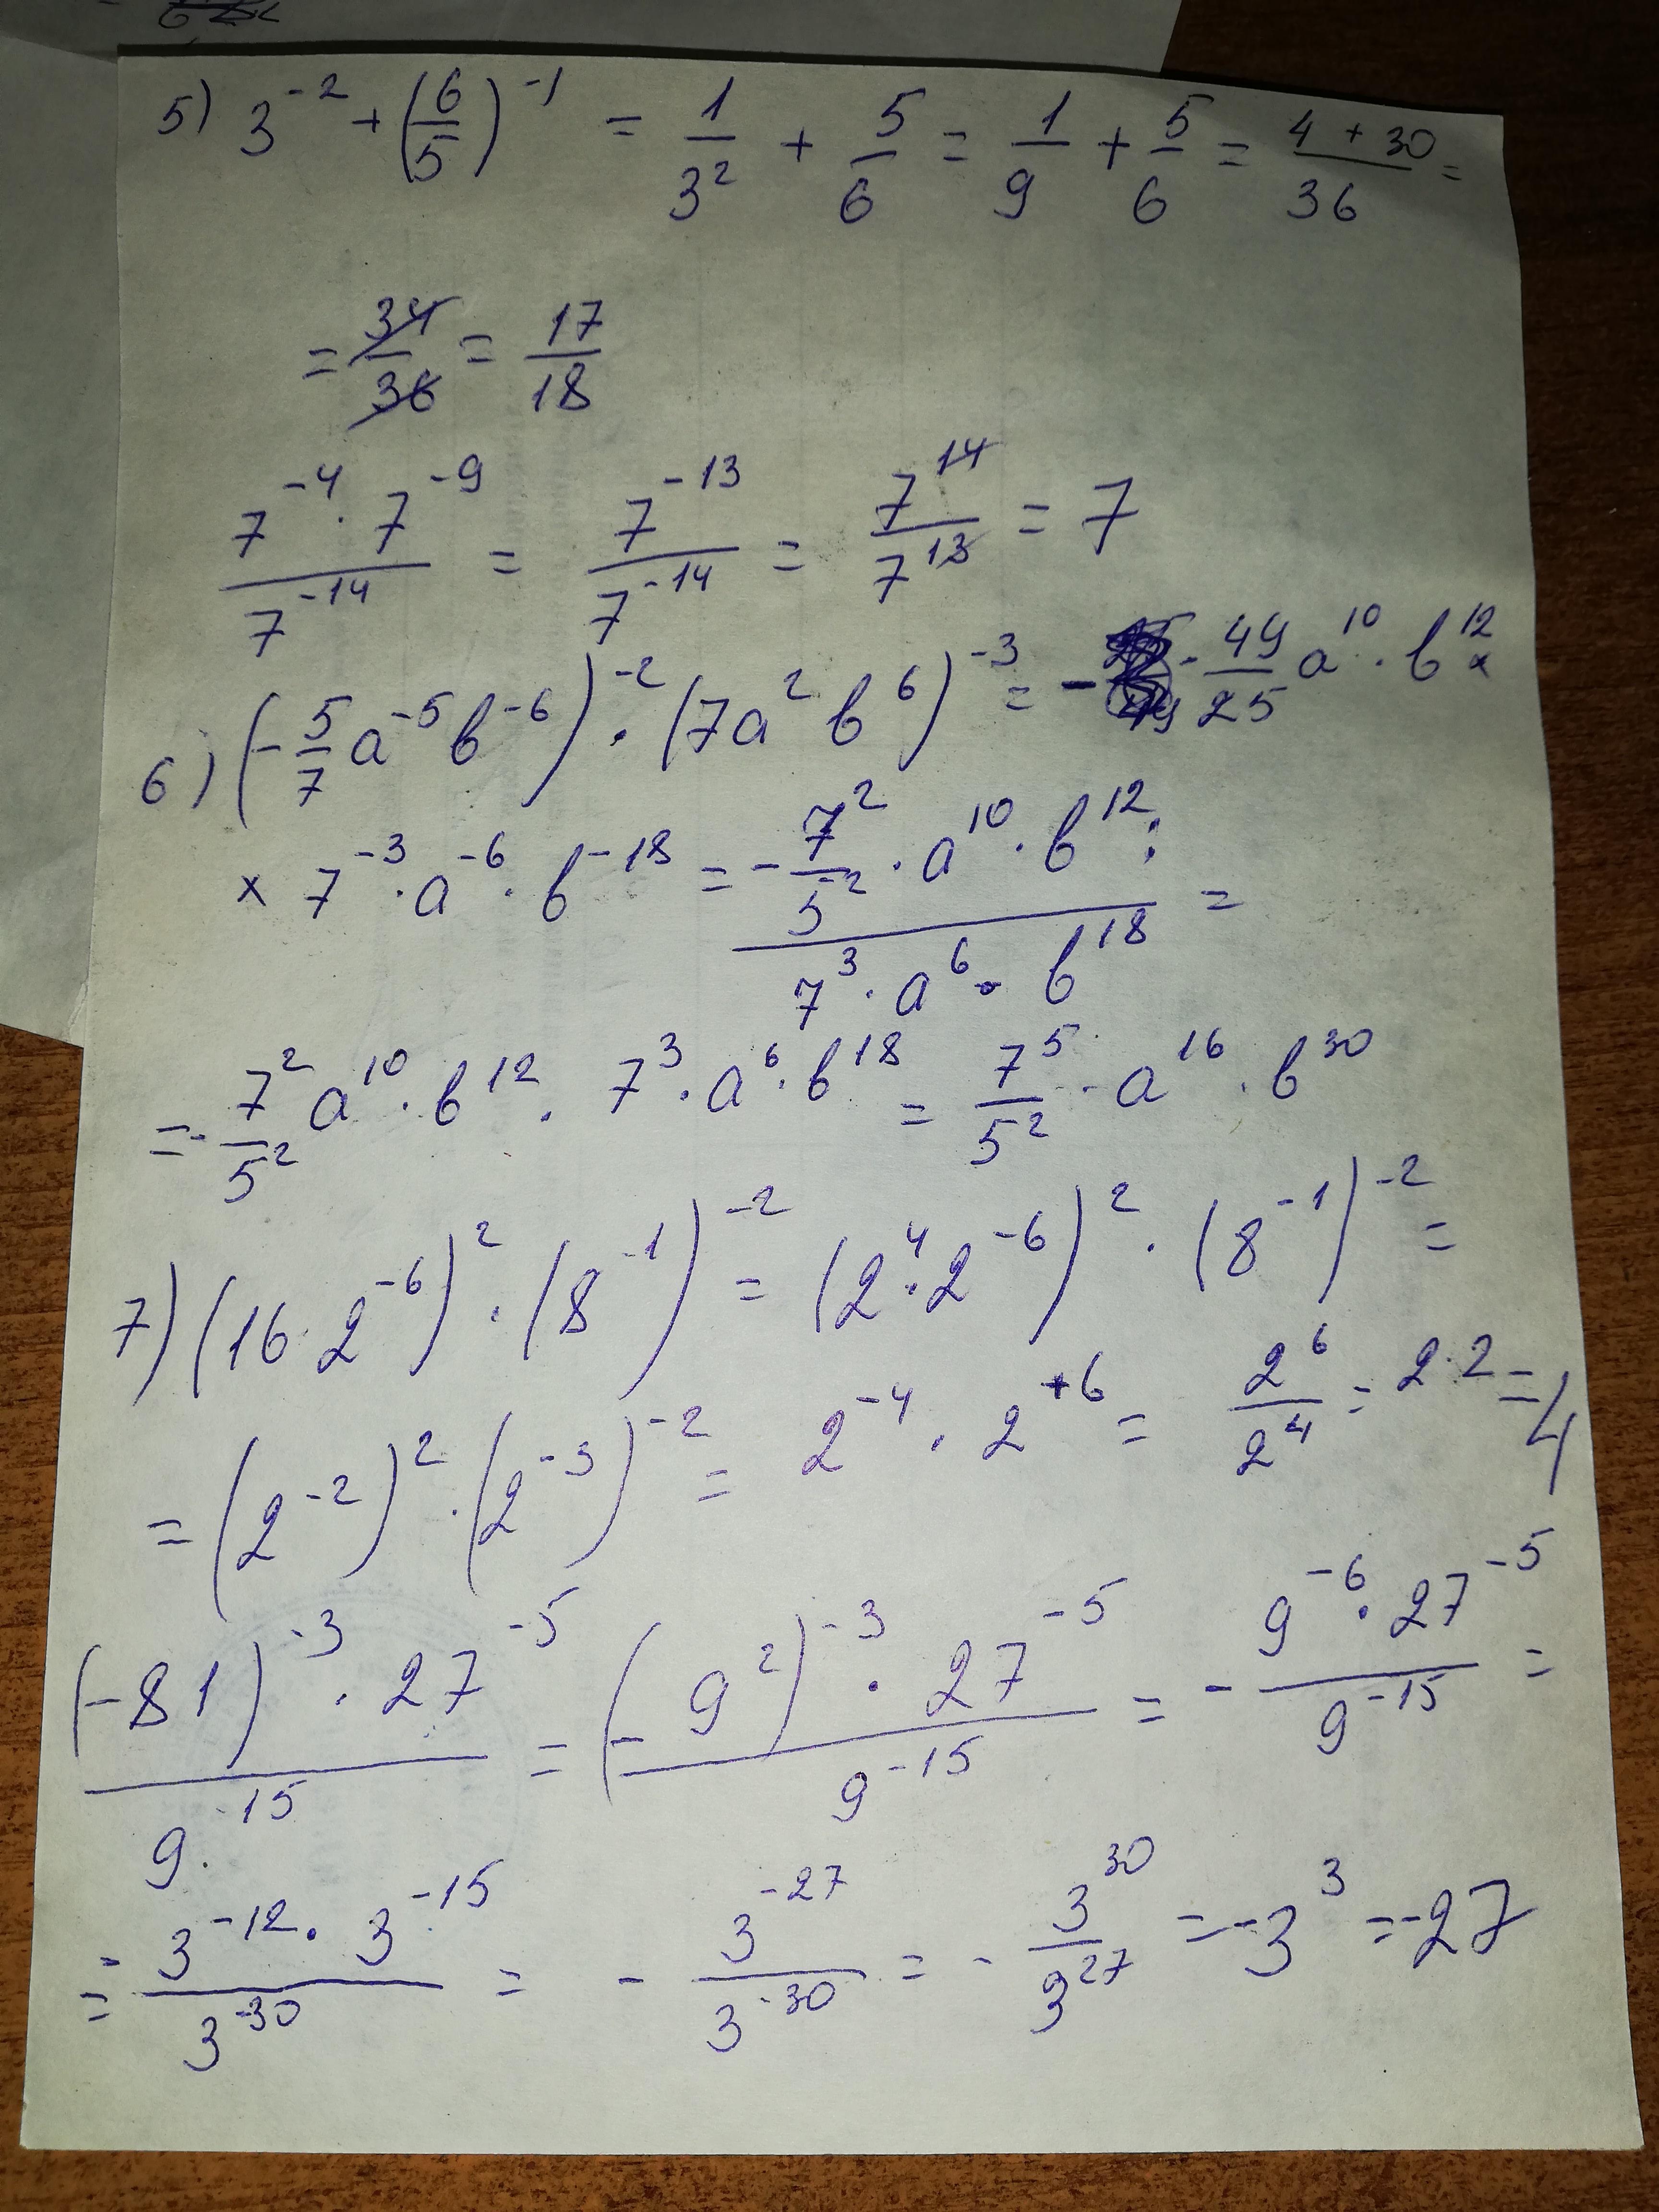 5) 3^-2 + (6/5)^-1 = 1/3^2 + 5/6 = 1/9 + 5/6 = (4 + 30)/36 =
= 34/36 = 17/18
(7^-4 · 7^-9)/7^-14 = 7^-13/7^-14 = 7^14/7^13 = 7
6) (-5/7 a^-5 b^-6)^-2 · (7a^2 b^6)^-3 = - 49/25 a^10 · b^12 ×
× 7^-3 · a^-6 · b^-18 = (-7^2/5^2 · a^10 · b^12 :)/(7^3 · a^6 · b^18) =
= -7^2/5^2 a^10 · b^12 · 7^3 · a^6 · b^18 = 7^5/5^2 · a^16 · b^30
7) (16 · 2^-6)^2 · (8^-1)^-2 = (2^4 · 2^-6)^2 · (8^-1)^-2 =
= (2^-2)^2 · (2^-3)^-2 = 2^-4 · 2^+6 = 2^6/2^4 = 2 · 2 = 4
((-81)^-3 · 27^-5)/9^-15 = ((-9^2)^-3 · 27^-5)/9^-15 = - (9^-6 · 27^-5)/9^-15 =
= - (3^-12 · 3^-15)/3^-30 = - 3^-27/3^-30 = - 3^30/3^27 = -3^3 = -27